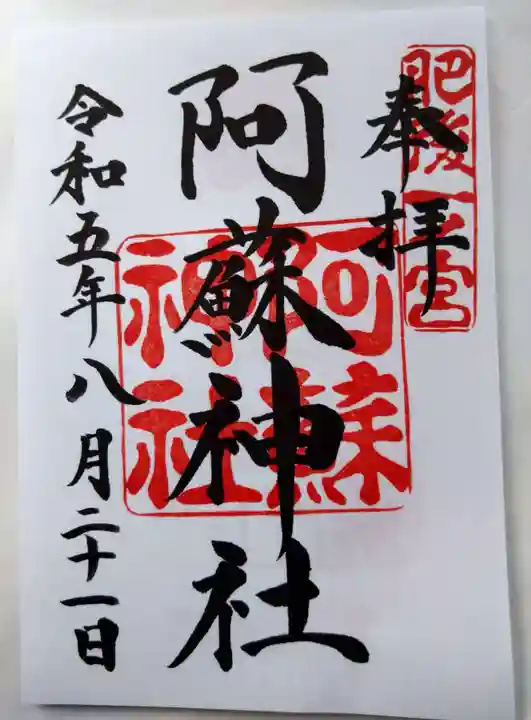 肥後一之宮
奉拝
阿蘇神社
阿蘇神社
令和五年八月二十一日